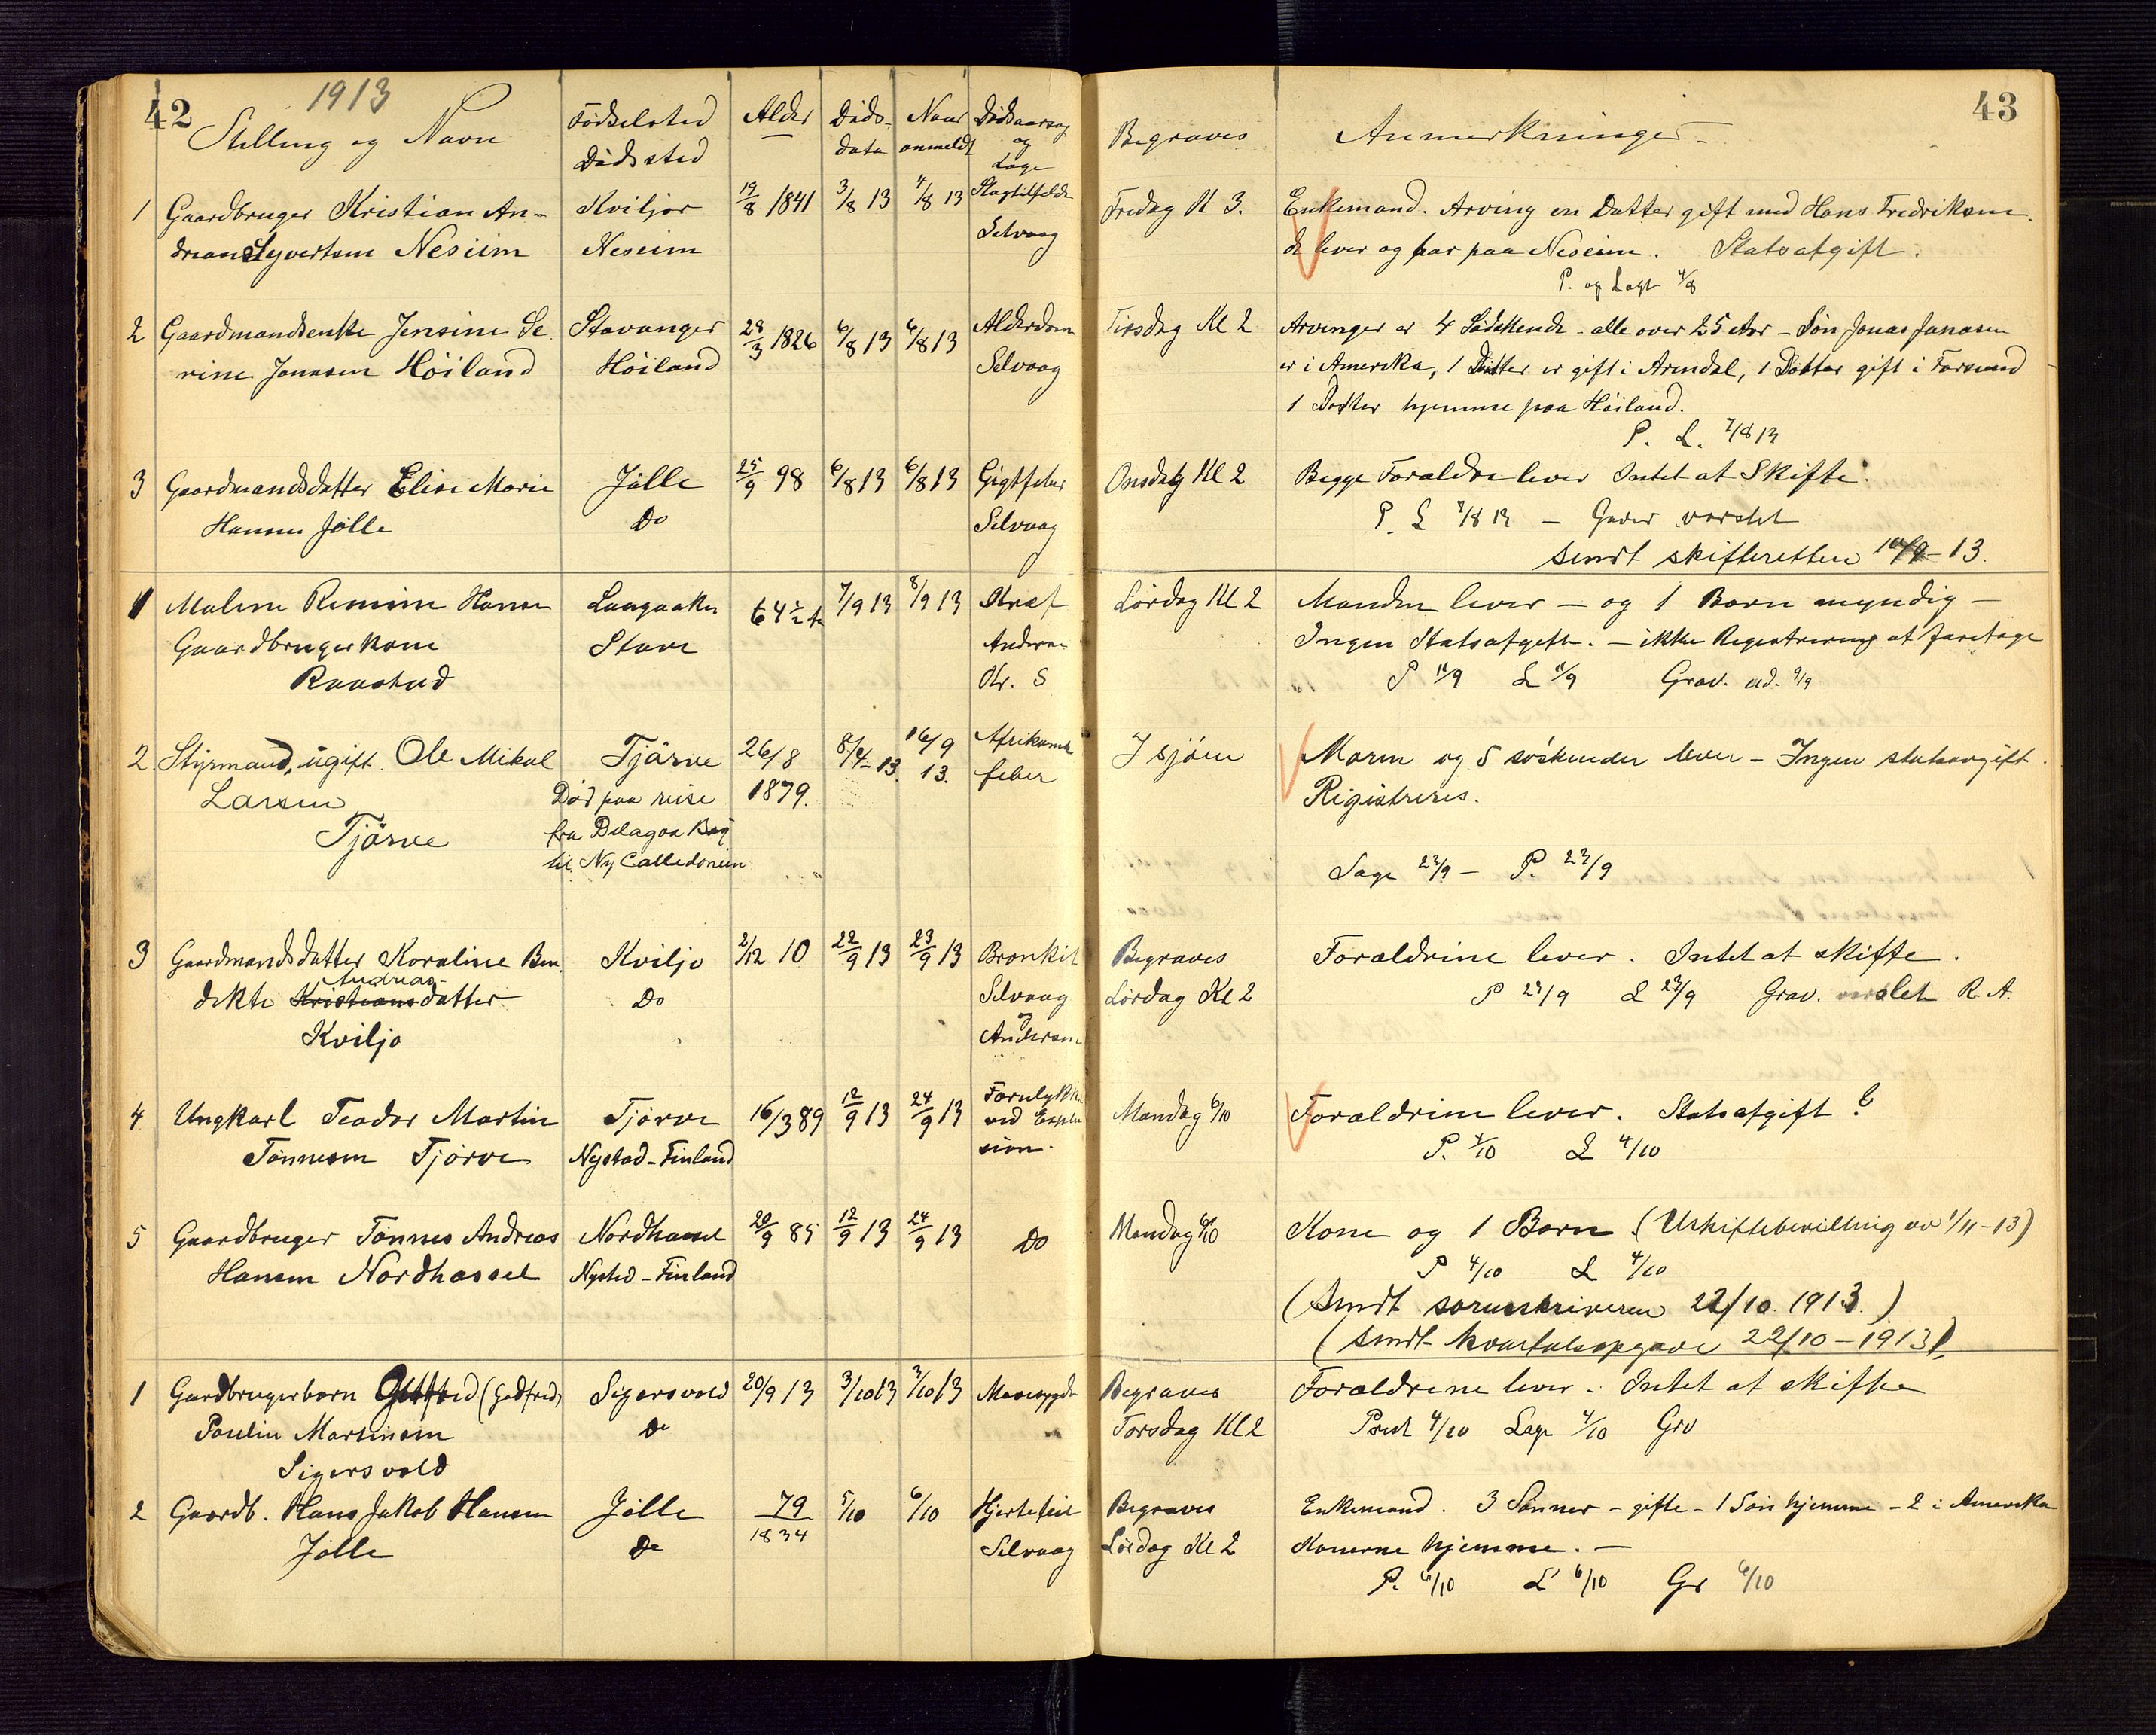 42
1913
43
Stilling og Navn
Födselsted
Dödssted
Alder
Döds-
data
Naar
anmeldt
Dödsaarsag
og
Læge
Begraves
Anmerkninger
1 Gaardbruger Kristian An- Kviljor 19/8 1841 3/8 13 4/8 13 Slagtilfelde Fredag Kl 3. Enkemand. Arving en Datter gift med Hans Fredriksen.
drean Syvertsen Neseim Neseim Selvaag de lever og bor paa Neseim. Statsafgift.
P. og Lagt 4/8
2 Gaardmandsenke Jensine Se Stavanger 28/3 1826 6/8 13 6/8 13 Alderdom Tirsdag Kl 2 Arvinger er 4 Södskende - alle over 25 Aar - Sön Jonas Jonasen
rine Jonasen Höiland Höiland Selvaag er i Amerika, 1 Datter er gift i Arendal, 1 Datter gift i Farsund
1 Datter hjemme paa Höiland.
P. L. 7/8 13
3 Gaardmandsdatter Elise Marie Jölle 25/9 98 6/8 13 6/8 13 Gigtfeber Onsdag Kl 2 Begge Foraldre lever Intet at Skifte.
Hansen Jölle Do Selvaag P. L 7/8 13 - Graver varslet
Sendt skifteretten 10/9-13.
1 Malene Remine Hansen Langaaker 64 1/2 7/9 13 8/9 13 Lördag Kl 2 Manden lever - og 1 Barn myndig -
Gaardbrugerkone Stave Ingen Statsafgift. - ikke Registrering at foretage
Raastad Kr. S P 11/9 L 11/9 Grav. ad. 9/9
2. Styrmand, ugift. Ole Mikal Tjörve 26/8 8/4-13. 16/9 Afrikansk I sjöen Moren og 5 söskender lever - Ingen statsavgift.
Larsen Död paa reise 1879. 13. feber Registreres.
Tjörve fra Delagoa Bay
til Ny Calledonien
Læge 23/9 - P. 23/9
3 Gaardmandsdatter Koraline Ben Kviljo 2/12 10 22/9 13 23/9 13 Bronkit Begraves Foraldrine lever. Intet at skifte.
dikte Kristians Andreas datter Do Selvaag Lördag Kl 2 P 23/9 L 23/9 Grav. varslet R. A.
Kviljo og Andersen
4 Ungkarl Teodor Martin Tjörve 16/3 89 12/9 13 24/9 13 Forulykke Mandag 6/10 Foraldrine lever. Statsafgift ?
Tönnesen Tjörve Nystad - Finland ved Explo P. 4/10 L 4/10
sion.
5 Gaardbruger Tönnes Andreas Nordhassel 20/9 85 12/9 13 24/9 13 Do Mandag 6/10 Kone og 1 Barn (Uskiftebevilling av 1/11-13)
Hansen Nordhassel Nysted - Finland P 4/10 L 4/10
(Sendt sorenskriveren 22/10. 1913.)
(Sendt kvartalsopgave 22/10 - 1913)
1 Gardbrugerbarn Gotfred (Godfred) Sigersvold 20/9 13 3/10 13 3/10 13 Mavesygd Begraves Foraldrene lever. Intet at skifte
Paulin Martinsen Do Torsdag Kl 2 Prest 4/10 Læge 4/10 Grv
Sigersvold
2 Gaardb. Hans Jakob Hansen Jölle 79 5/10 6/10 Hjertefeil Begraves Enkemand. 3 Sönner - gifte - 1 Sön hjemme - 2 i Amerika
Jölle Do 1834 Selvaag Lördag Kl 2 Konerne hjemme. -
P. 6/10 L 6/10 Gr 6/10